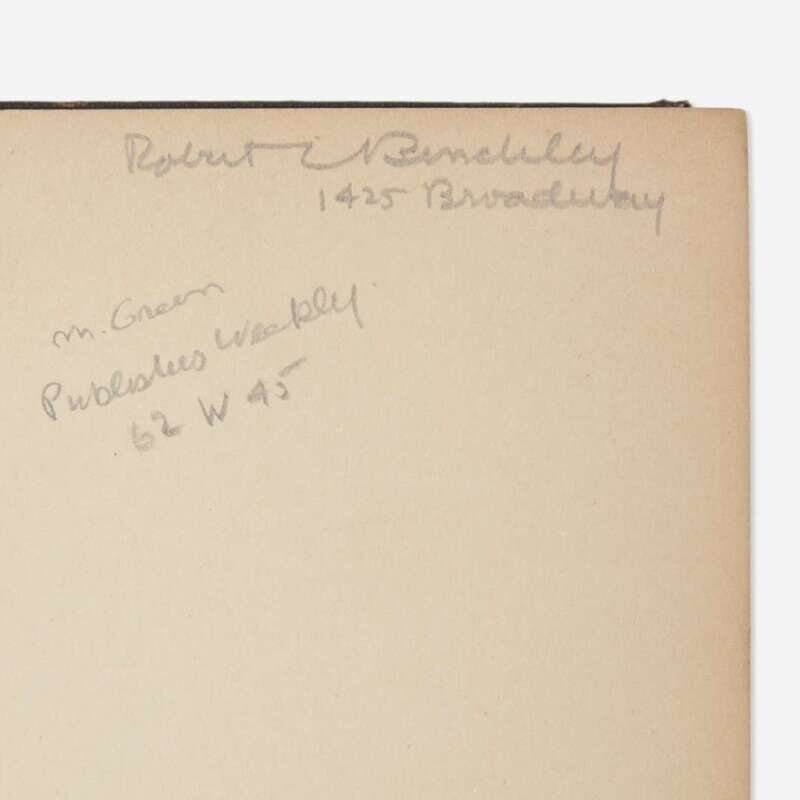 Robert C Benchley
1425 Broadway
M. Green
Publishers Weekly
62 W 45